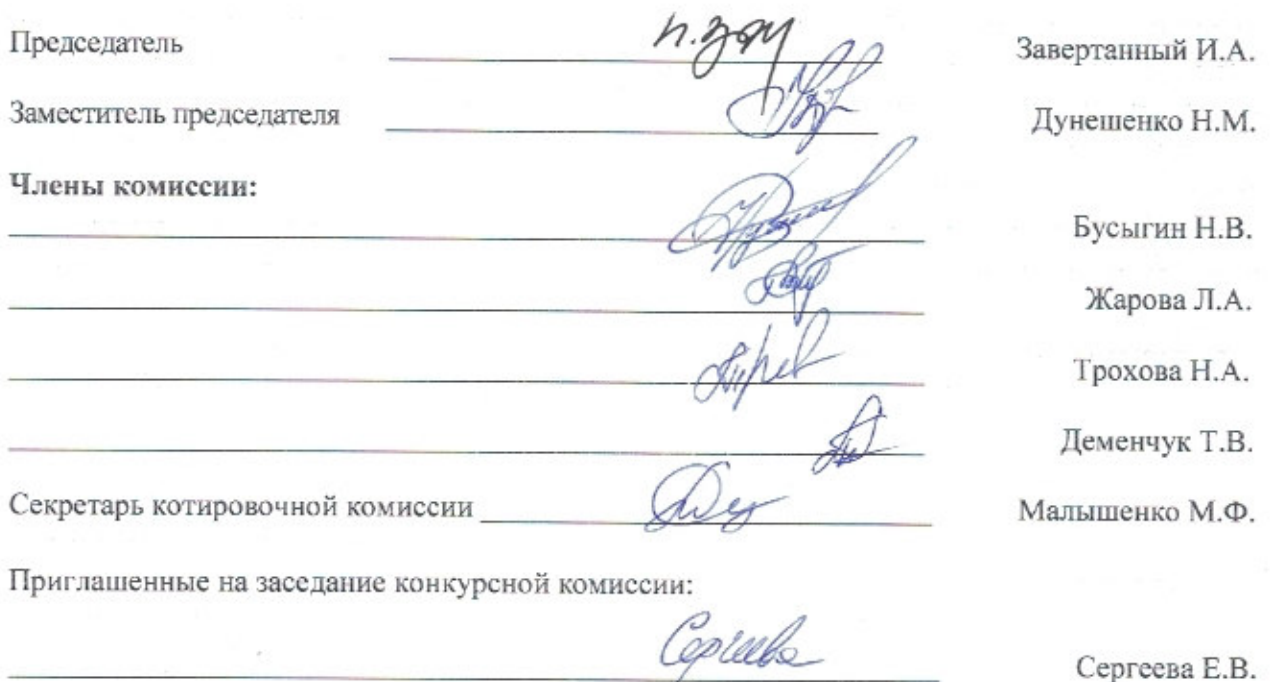 Председатель Завертанный И.А.
Заместитель председателя Дунешенко Н.М.
Члены комиссии:
Бусыгин Н.В.
Жарова Л.А.
Трохова Н.А.
Деменчук Т.В.
Секретарь котировочной комиссии Малышенко М.Ф.
Приглашенные на заседание конкурсной комиссии:
Сергеева Сергеева Е.В.